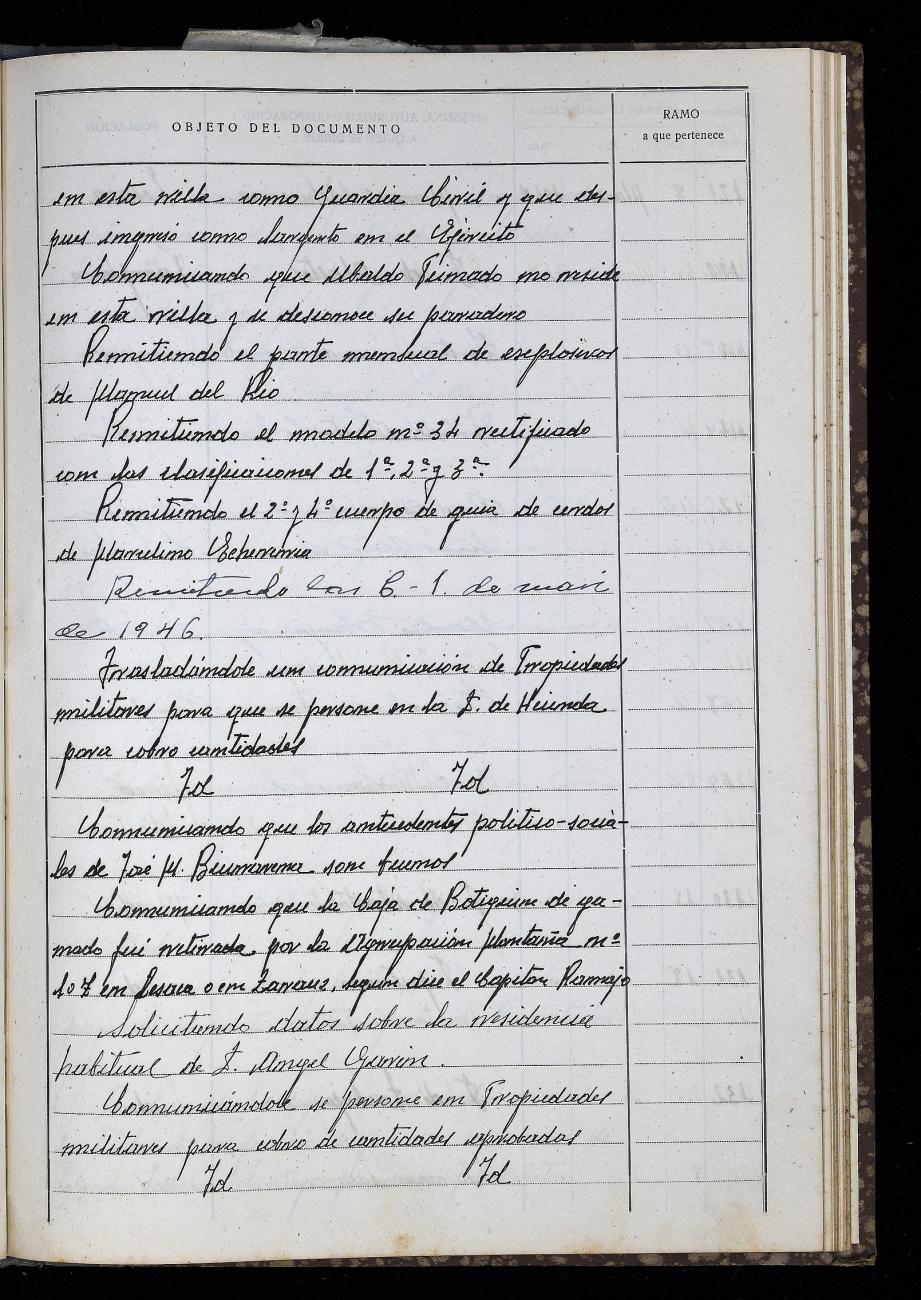 OBJETO DEL DOCUMENTO
RAMO
a que pertenece
en esta villa como Guardia Civil y que des-
pues ingreso como Sargento en el Ejército
Comunicando que Ubaldo Teimado no reside
en esta villa y se desconoce su paradero
Remitiendo el parte mensual de explosivos
de Manuel del Rio
Remitiendo el modelo nº 34 rectificado
con las clasificaciones de 1ª, 2ª y 3ª.
Remitiendo el 2º y 4º cuerpo de guia de cerdos
de Marcelino Echeverria
Remitiendo los C-1. de
de 1946.
Trasladándole un comunicación de Propiedades
militares para que se persone en la J. de Hacienda
para cobro cantidades
Id Id
Comunicando que los antecedentes politico-socia-
les de José M. son buenos
Comunicando que la Caja de Botiquin de ga-
nado fué retirada por la Agrupación Montaña nº
107 en Lesaca o en Zarauz, segun dice el Capitan Ramajo
Solicitando datos sobre la residencia
habitual de D. Angel Garin.
Comunicándole se persone en Propiedades
militares para cobro de cantidades aprobadas
Id Id